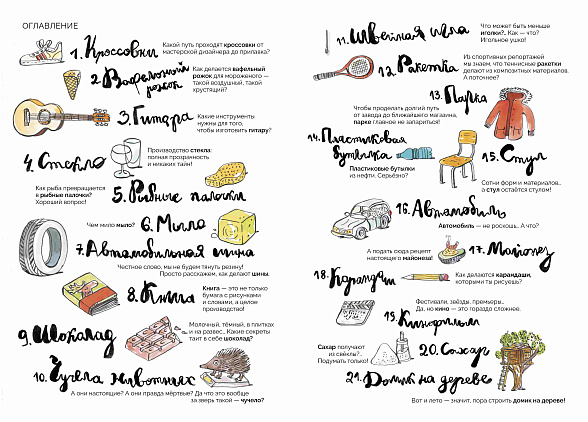 ОГЛАВЛЕНИЕ
1. Кроссовки
Какой путь проходят кроссовки от
мастерской дизайнера до прилавка?
2. Вафельный
рожок
Как делается вафельный
рожок для мороженого —
такой воздушный, такой
хрустящий?
3. Гитара
Какие инструменты
нужны для того,
чтобы изготовить гитару?
4. Стекло
Производство стекла:
полная прозрачность
и никаких тайн!
Как рыба превращается
в рыбные палочки?
Хороший вопрос!
5. Рыбные палочки
Чем мило мыло?
6. Мыло
7. Автомобильная шина
Честное слово, мы не будем тянуть резину!
Просто расскажем, как делают шины.
8. Книга
Книга — это не только
бумага с рисунками
и словами, а целое
производство!
9. Шоколад
Молочный, тёмный, в плитках
и на развес.. Какие секреты
таит в себе шоколад?
10. Чучела животных
А они настоящие? А они правда мёртвые? Да что это вообще
за зверь такой — чучело?
11. Швейная игла
Что может быть меньше
иголки?.. Как — что?
Игольное ушко!
12. Ракетка
Из спортивных репортажей
мы знаем, что теннисные ракетки
делают из композитных материалов.
А поточнее?
13. Парка
Чтобы проделать долгий путь
от завода до ближайшего магазина,
парка главное не запариться!
14. Пластиковая
бутылка
Пластиковые бутылки
из нефти. Серьёзно?
15. Стул
Сотни форм и материалов..
а стул остаётся стулом!
16. Автомобиль
Автомобиль — не роскошь.. А что?
А подать сюда рецепт
настоящего майонеза!
17. Майонез
18. Карандаш
Как делаются карандаши,
которыми ты рисуешь?
Фестивали, звёзды, премьеры..
Да, но кино — это гораздо сложнее.
19. Кинофильм
Сахар получают
из свёклы?..
Подумать только!
20. Сахар
21. Домик на дереве
Вот и лето — значит, пора строить домик на дереве!